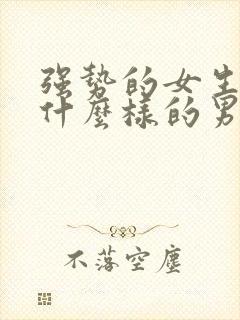 强势的女生
什麼樣的男
不落空塵